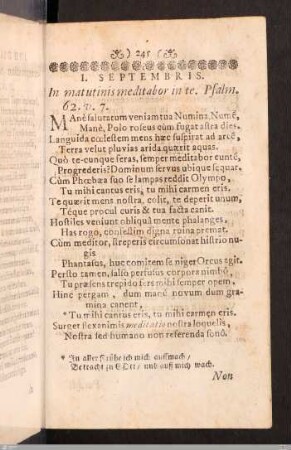 ) 241 (
I. SEPTEMBRIS.
In matutinis meditabor in te. Psalm.
62. v. 7.
MAnè salutatum veniam tua Numina, Numē,
Manè, Polo roseus cùm fugat astra dies.
Languida cœlestem mens hæc suspirat ad arcē,
Terra velut pluvias arida quærit aquas.
Quò te-cunque feras, semper meditabor euntē,
Progrederis? Dominum servus ubique sequar.
Cùm Phœbæa suo se lampas reddit Olympo,
Tu mihi cantus eris, tu mihi carmen eris.
Te quærit mens nostra, colit, te deperit unum,
Téque procul curis & tua facta canit.
Hostiles veniunt obliquâ mente phalanges,
Has rogo, confestim digna ruina premat.
Cùm meditor, streperis circumsonat histrio nu-
gis
Phantasus, huc comitem se niger Orcus agit.
Persto tamen, falsò perfusus corpora nimbō,
Tu præsens trepido fers mihi semper opem,
Hinc pergam, dum manè novum dum gra-
mina canent,
* Tu mihi cantus eris, tu mihi carmen eris.
Surget flexanimis meditatio nostra loquelis,
Nostra sed humano non referenda sonō.
* In aller Frühe ich mich auffmach /
Betracht zu GOtt / und auff mich wach.
Non